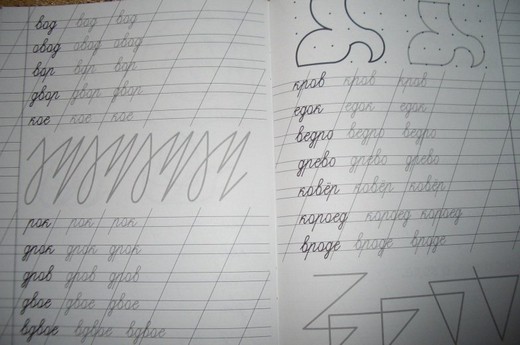 вод вод вод
овод овод овод
вор вор вор
двор двор двор
кое кое кое
рок рок рок
дрок дрок дрок
дров дров дров
двое двое двое
вдвое вдвое вдвое
кров кров кров
едок едок едок
ведро ведро ведро
древо древо древо
ковёр ковёр ковёр
короед короед короед
вроде вроде вроде